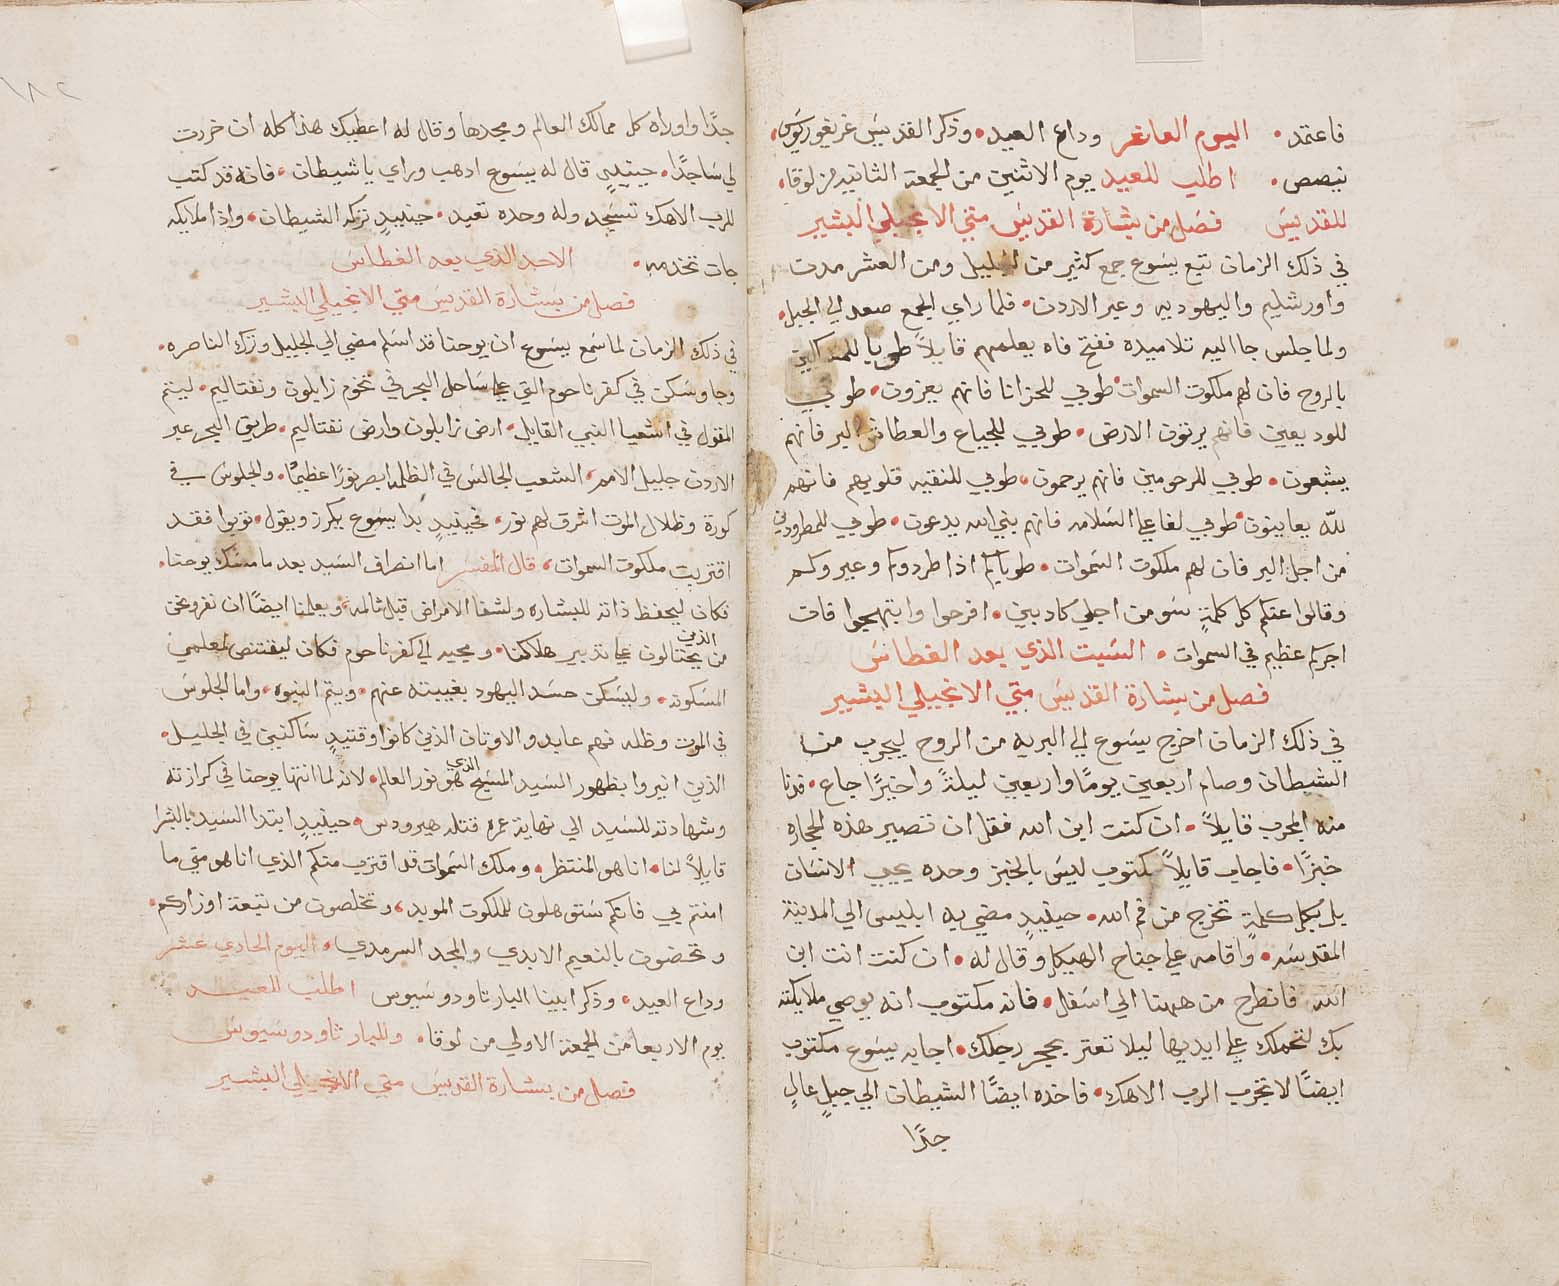 فاعتمد • اليوم العاشر وداع العيد • وذكر القديس غريغوريوس •
نيصص • اطلب للعيد يوم الاثنين من الجمعة الثانيه من لوقا •
للقديس فصل من بشارة القديس متي الانجيلي البشير
في ذلك الزمان تبع يسوع جمع كثير من الجليل ومن العشر مدن
واورشليم واليهوديه وعبر الاردن • فلما راي الجمع صعد الي الجبل •
ولما جلس جا اليه تلاميذه ففتح فاه يعلمهم قايلاً طوبا للمساكين
بالروح فان لهم ملكوت السموات • طوبي للحزانا فانهم يعزون • طوبي
للوديعين فانهم يرثون الارض • طوبي للجياع والعطاش البر فانهم
يشبعون • طوبي للرحومين فانهم يرحمون • طوبي للنقيه قلوبهم فانهم
لله يعاينون • طوبي لفاعلي السلامه فانهم بني الله يدعون • طوبي للمطرودين
من اجل البر فان لهم ملكوت السموات • طوباكم اذا طردوكم وعيروكم
وقالوا عنكم كل كلمةٍ سو من اجلي كادبين • افرحوا وابتهجوا فان
اجركم عظيم في السموات • السبت الذي بعد الغطاس
فصل من بشارة القديس متي الانجيلي البشير
في ذلك الزمان اخرج يسوع الي البريه من الروح ليجرب من
الشيطان وصام اربعين يومًا واربعين ليلةً واخيرًا جاع • فدنا
منه المجرب قايلاً • ان كنت ابن الله فقل ان تصير هذه الحجارة
خبزًا • فاجاب قايلاً مكتوب ليس بالخبز وحده يحيي الانسان
بل بكل كلمةٍ تخرج من فم الله • حينيذٍ مضي به ابليس الي المدينة
المقدسه • واقامه علي جناح الهيكل وقال له • ان كنت انت ابن
الله فانطرح من ههنا الي اسفل • فانه مكتوب انه يوصي ملايكته
بك لتحملك علي ايديها ليلا تعتر بحجر رجلك • اجابه يسوع مكتوب
ايضًا لا تجرب الرب الاهك • فاخده ايضًا الشيطان الي جبلٍ عالٍ
جدًا
١٨٢
جدًا واوراه كل ممالك العالم ومجدها وقال له اعطيك هذا كله ان خررت
لي ساجدًا • حينيذٍ قال له يسوع ادهب وراي يا شيطان • فانه قد كتب
للرب الاهك تسجد وله وحده تعبد • حينيذٍ تركه الشيطان • واذا ملايكه
جات تخدمه • الاحد الذي بعد الغطاس
فصل من بشارة القديس متي الانجيلي البشير
في ذلك الزمان لما سمع يسوع ان يوحنا قد اسلم مضي الي الجليل وترك الناصره •
وجا وسكن في كفرناحوم التي علي ساحل البحر في تخوم زابلون ونفتاليم • ليتم
المقول في اشعيا النبي القايل • ارض زابلون وارض نفتاليم • طريق البحر عبر
الاردن جليل الامم • الشعب الجالس في الظلمه ابصر نورًا عظيمًا • والجلوس في
كورة وظلال الموت اشرق لهم نور • فحينيذٍ بدا يسوع يكرز ويقول • توبوا فقد
اقتربت ملكوت السموات • قال المفسر اما انصراف السيد بعد ما مسك يوحنا •
فكان ليحفظ ذاته للبشاره ولشفا الامراض قبل تالمه • ويعلمنا ايضًا ان نفر وعني
من الذين يحتالون علي تدبير هلاكنا • ومجيه الي كفرناحوم فكان ليقتنص لمعلمي
المسكونه • وليسكن حسد اليهود بغيبته عنهم • ويتم النبوه • واما الجلوس
في الموت وظله فهم عابدو الاوتان الذين كانوا وقتيذٍ ساكنين في الجليل •
الذين انيروا بظهور السيد المسيح الذي هو نور العالم • لانه لما انتها يوحنا في كرازته
وشهادته للسيد الي نهاية عمره قتله هيرودس • حينيذٍ ابتدا السيد بالبشرا
قايلاً لنا • انا هو المنتظر • وملك السموات قد اقترب منكم الذي انا هو متي ما
امنتم بي فانكم ستوهلون للملكوت الموبد • وتخلصون من تبعة اوزاركم •
وتحضون بالنعيم الابدي والمجد السرمدي • اليوم الحادي عشر
وداع العيد • وذكر ابينا البار تاودوسيوس اطلب للعيد
يوم الاربعا من الجمعة الاولي من لوقا • وللبار تاودوسيوس
فصل من بشارة القديس متي الانجيلي البشير